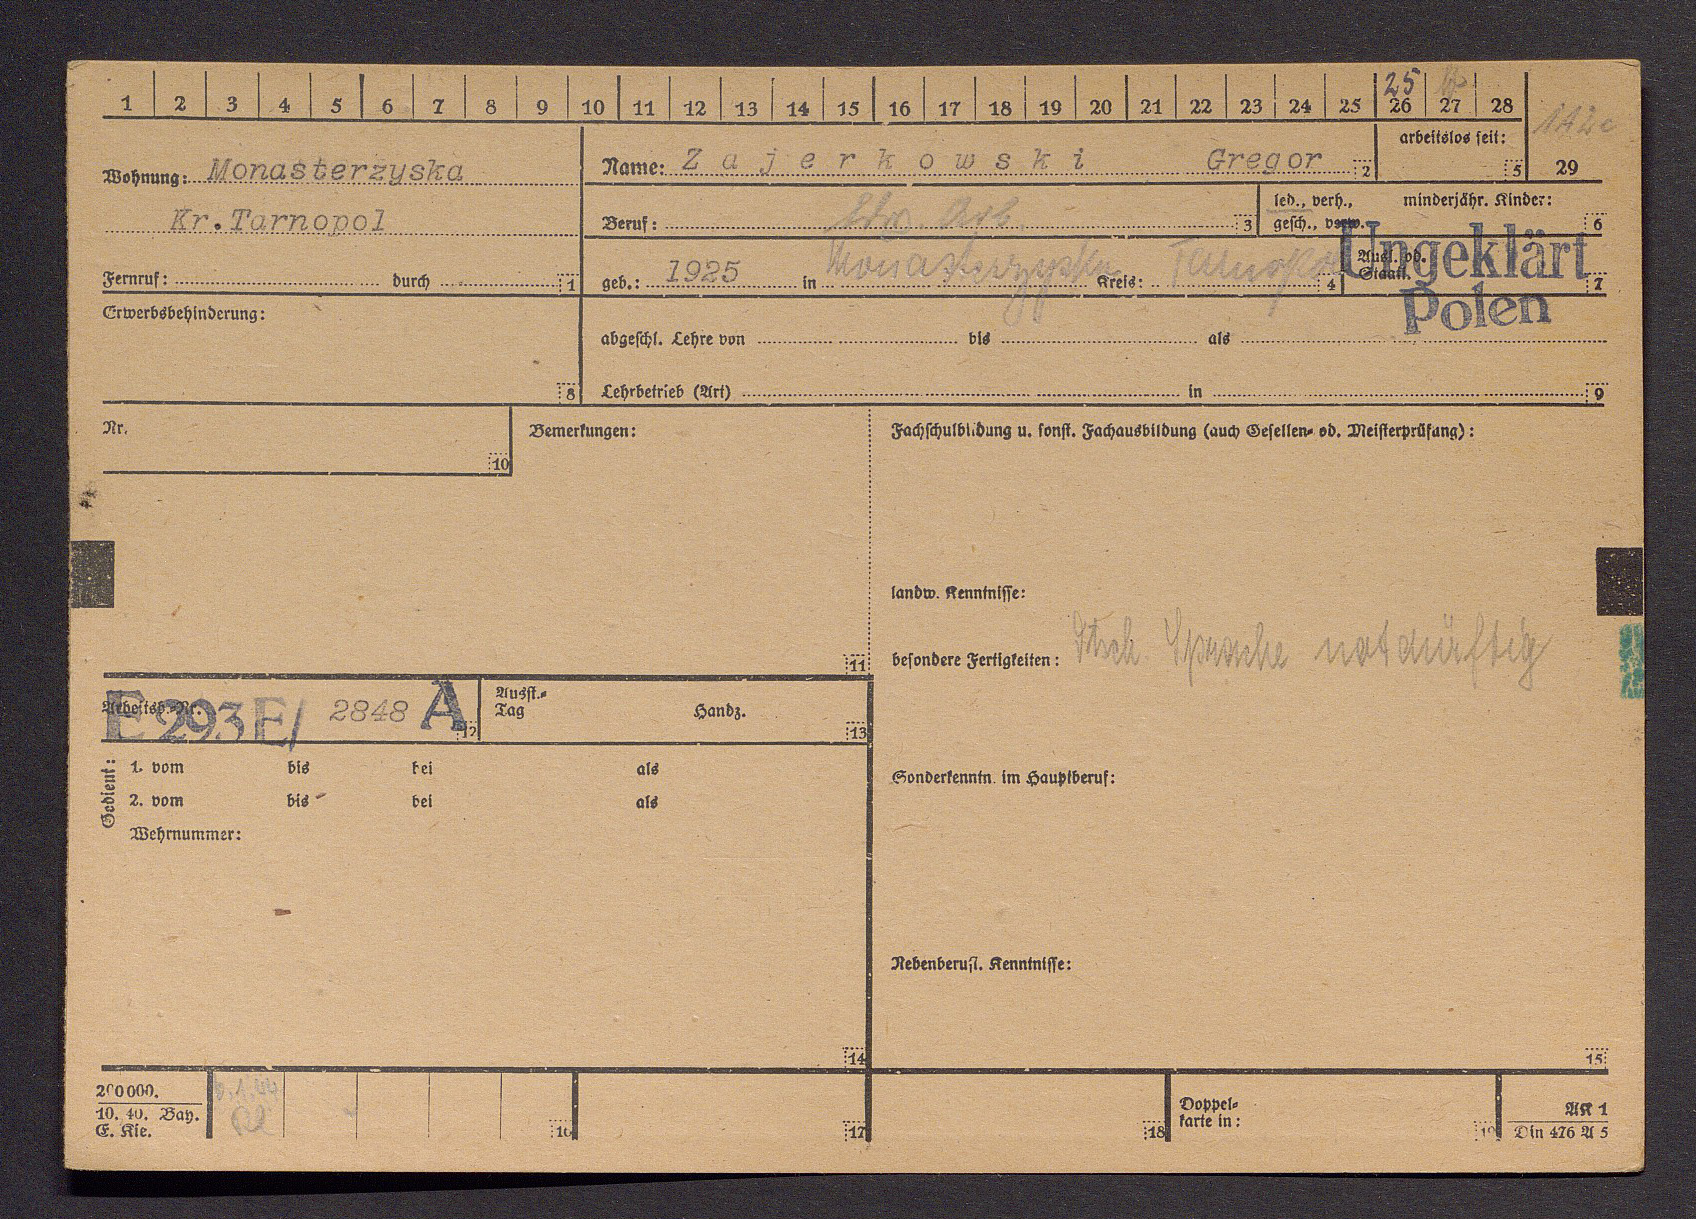 1 2 3 4 5 6 7 8 9 10 11 12 13 14 15 16 17 18 19 20 21 22 23 24 25 26 27 28 29
25
1A2c
Wohnung: Monasterzyska
Kr.Tarnopol
Fernruf: durch 1
Name: Zajerkowski Gregor 2
arbeitslos seit: 5
Beruf: Ldw. Arb. 3
led., verh., gesch., verw.
minderjähr. Kinder: 6
geb.: 1925 in Monasterzyska Kreis: Tarnopol 4
Ausl. od. Staatl. 7
Ungeklärt
Polen
Erwerbsbehinderung:
8
abgeschl. Lehre von bis als
Lehrbetrieb (Art) in 9
Nr.
10
Bemerkungen:
11
Fachschulbildung u. sonst. Fachausbildung (auch Gesellen- od. Meisterprüfung):
landw. Kenntnisse:
besondere Fertigkeiten: Dtsch. Sprache notdürftig
Arbeitsb.-Nr. E 293E/ 2848 A 12
Ausst.-
Tag Handz. 13
Gedient:
1. vom bis bei als
2. vom bis bei als
Wehrnummer:
14
Sonderkenntn. im Hauptberuf:
Nebenberufl. Kenntnisse:
15
200000.
10. 40. Bay.
E. Kie.
16
17
18
Doppel-
karte in:
19
AK 1
Din 476 A 5